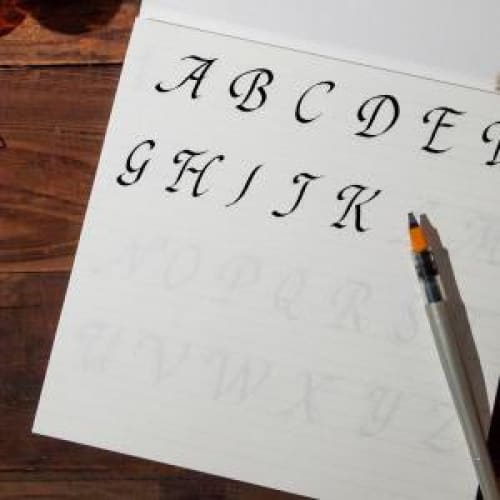 A B C D E F
G H I J K L M
N O P Q R S
U V W X Y Z